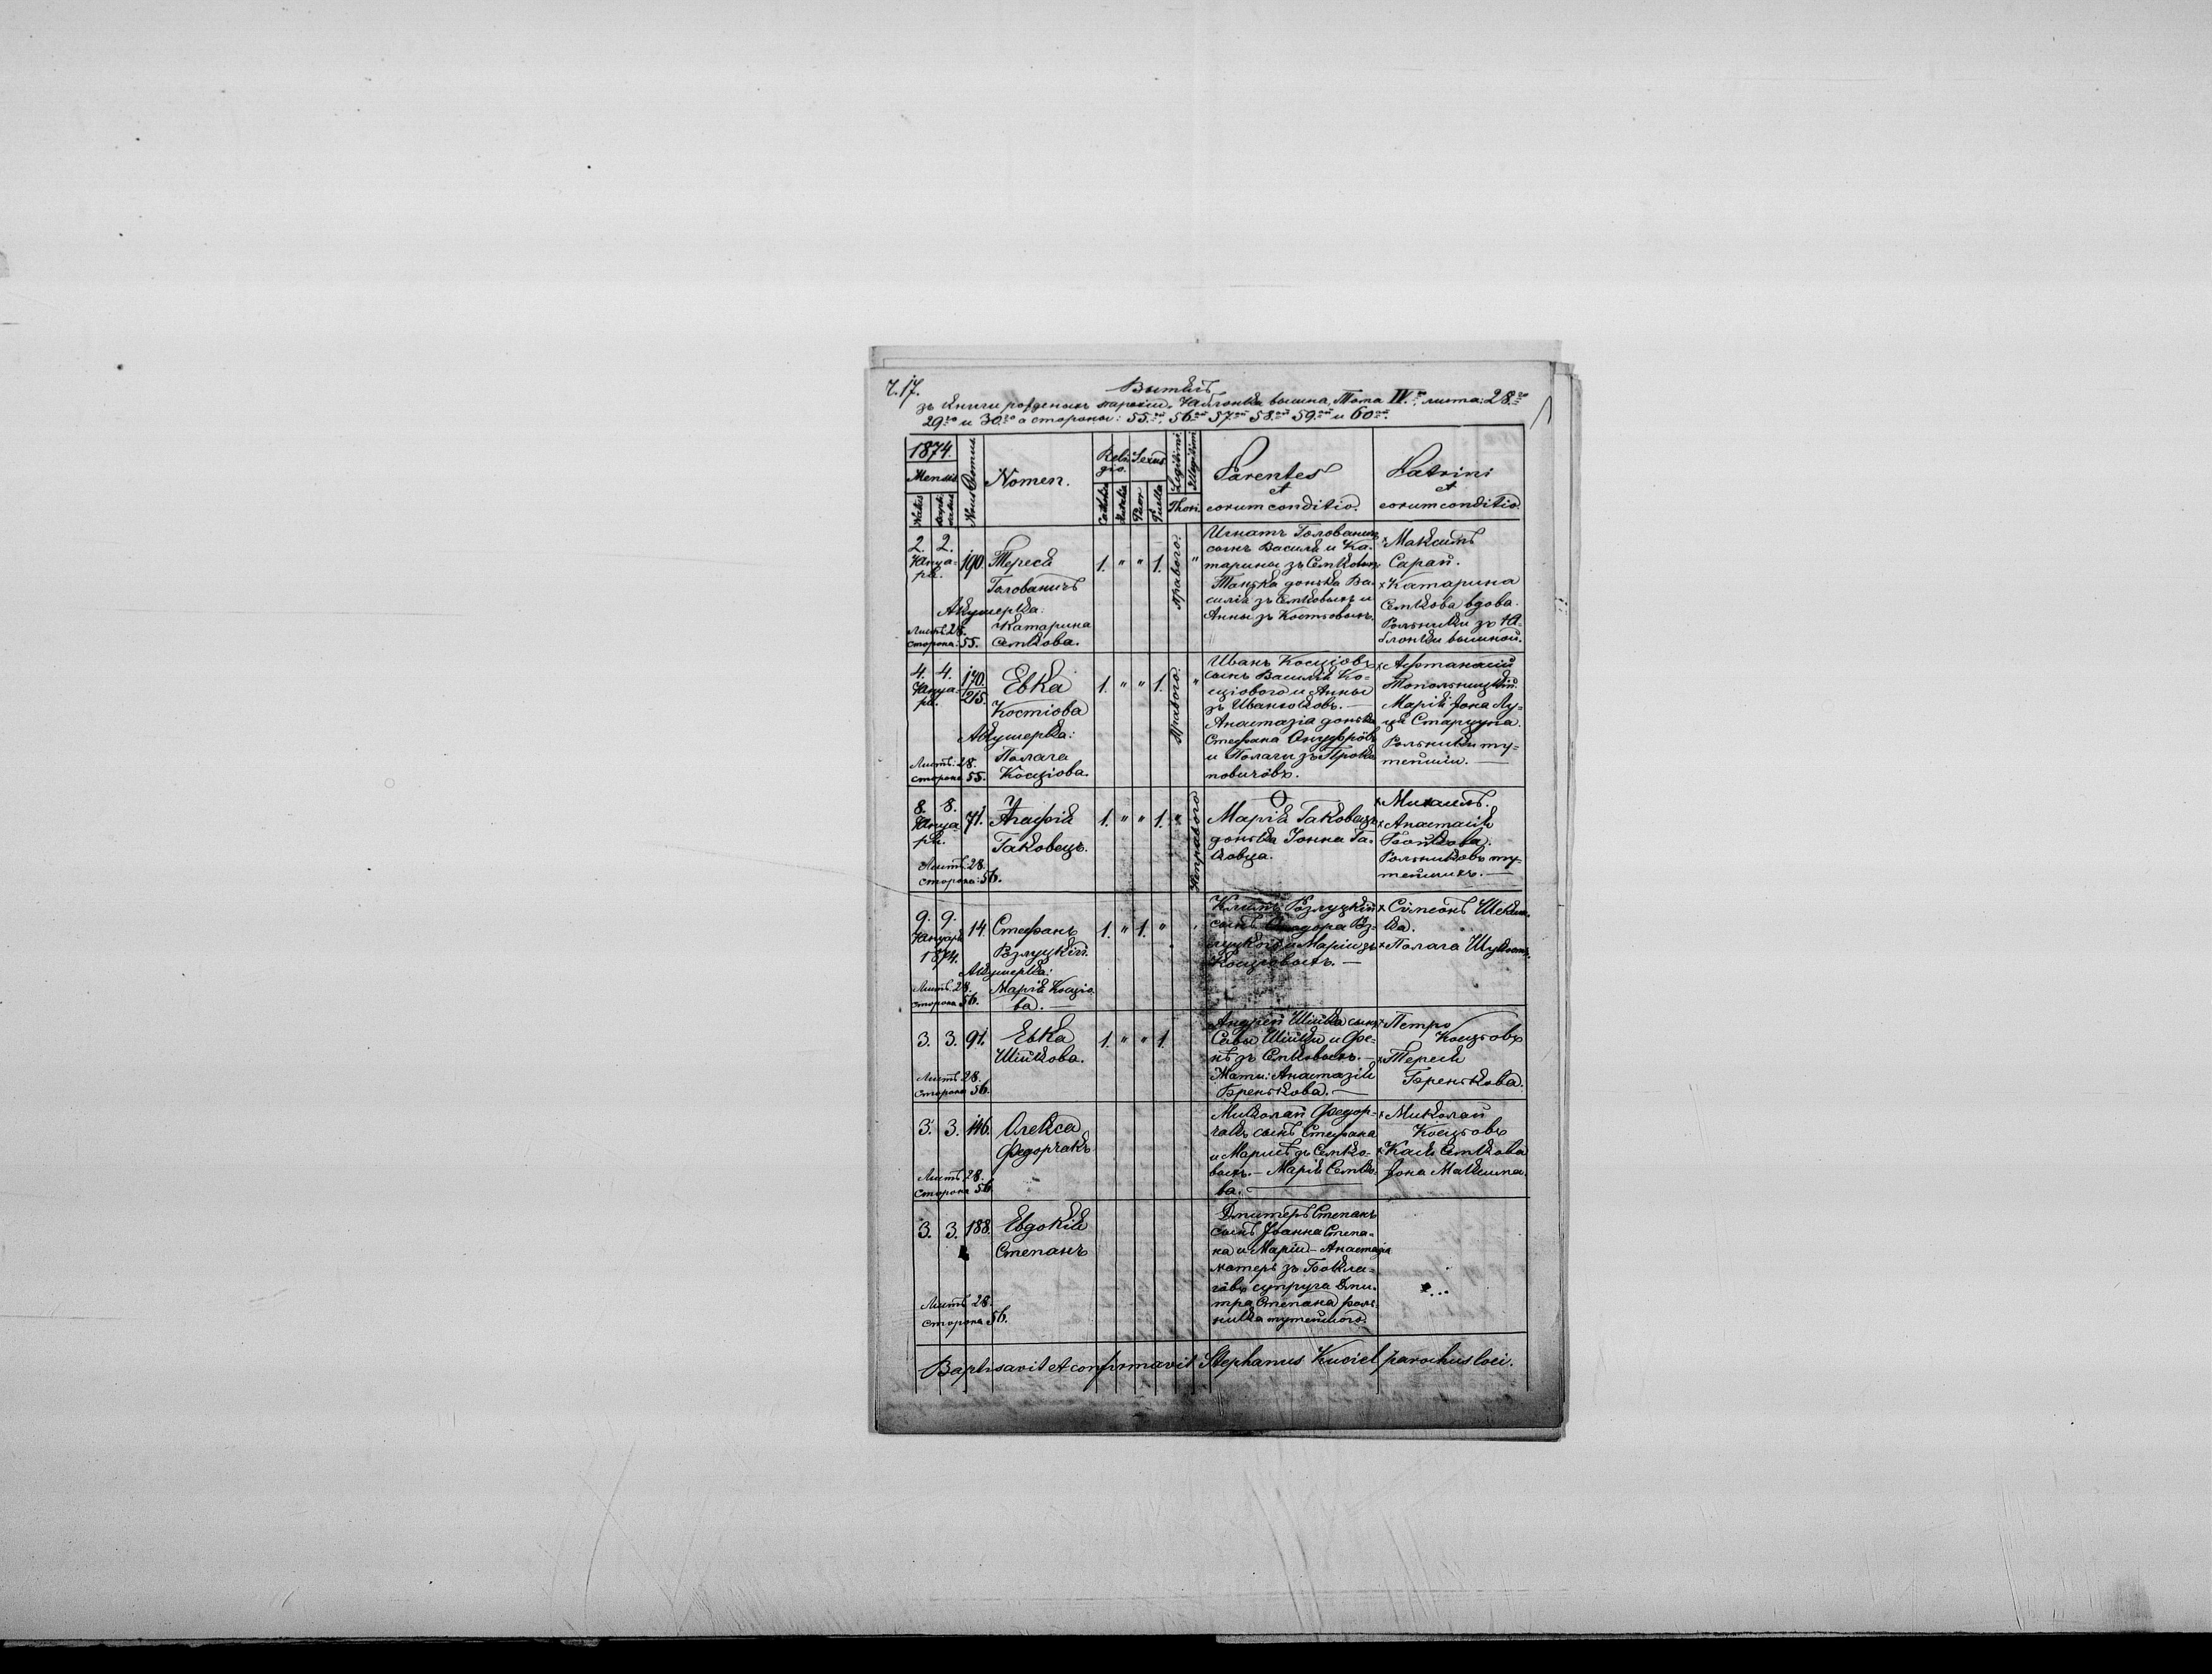 Ч. 17.
Вытягъ
зъ книги рожденыхъ парохіи Яблонка вышна, Тома IV. листа: 28.го
29.го и 30.го а стороны: 55.ой, 56.ой 57.ой 58.ой 59.ой и 60.ой
1874.
Mensis
Natus
Bapti-satus
Nrus Domus
Nomen.
Reli-gio.
Sexus
Legitimi
Illegitimi
Catholica
Puer
Puella
Thori.
Parentes
et
eorum conditio.
Patrini
et
eorum conditio.
2. 2.
Януа-
рія.
190.
Тереса
Головатичъ
Акушерка:
Катарина
Семкова.
Листъ 28.
сторона: 55.
1. " " 1.
Правого.
"
Игнатъ
сынъ Василя и Ка-
тарины зъ Семковыхъ
Танька донька Ва-
силія зъ Семковыхъ и
Анны зъ Костіовыхъ.
Максимъ
Сарай.
× Катарина
Семкова вдова.
Рольники зъ Я-
блонки вышной.
4. 4.
Януа-
рія.
170.
215.
Евка
Костіова
Акушерка:
Полага
Косціова.
Листъ: 28.
сторона 55.
1. " " 1.
Правого.
"
Иванъ Косціовъ
сынъ Василія Ко-
сціового и Анны
зъ Иваньковъ. —
Анастазія донька
Стефана
и Полаги зъ
повичôвъ.
× Афтаназій
Топольницкій.
Марія жона Лу-
ця Старцуна.
Рольники ту-
тейшіи. —
8. 8.
Януа-
рія.
71.
Агафія
Гаковецъ.
Листъ 28.
сторона: 56.
1. " " 1. "
Неправого
Марія Гаковецъ
донька Іонна Га-
ковца.
× Михаилъ.
× Анастасія
Рольниковъ ту-
тейшихъ. —
9. 9.
Януарія
1874.
14.
Стефанъ
Рзлуцкій.
Акушерка:
Марія Косціо-
ва. —
Листъ 28.
сторона 56.
1. " 1. "
Климъ Розлуцкій
сынъ Рз-
луцкого и Маріи зъ
Косціовыхъ. —
× Сѵмеонъ
× Полага
3. 3. 91.
Евка
Шійкова.
Листъ 28.
сторона 56.
1. " " 1.
Андрей Шійка сынъ
Савы Шійки и Фе-
нѣ зъ Семковыхъ. —
Мати: Анастазія
Бренькова. —
× Петро
Косцьовъ
× Тереся
Бренькова.
3. 3. 146.
Олекса
Федорчакъ
Листъ 28.
сторона 56.
Миколай Федор-
чакъ сынъ Стефана
и Маріи зъ Семко-
выхъ. — Марія Семко-
ва. —
× Миколай
Косцьовъ
× Кася Семкова
жона Максима.
3. 3. 188.
Евдокія
Степанъ
Листъ 28.
сторона 56.
Дмитеръ Степанъ
сынъ Іоанна Степа-
на и Маріи — Анастазія
матерь зъ
супруга Дми-
тра Степана роль-
ника тутейшого.
Baptisavit et confirmavit Stephanus Kuviel parochus loci.